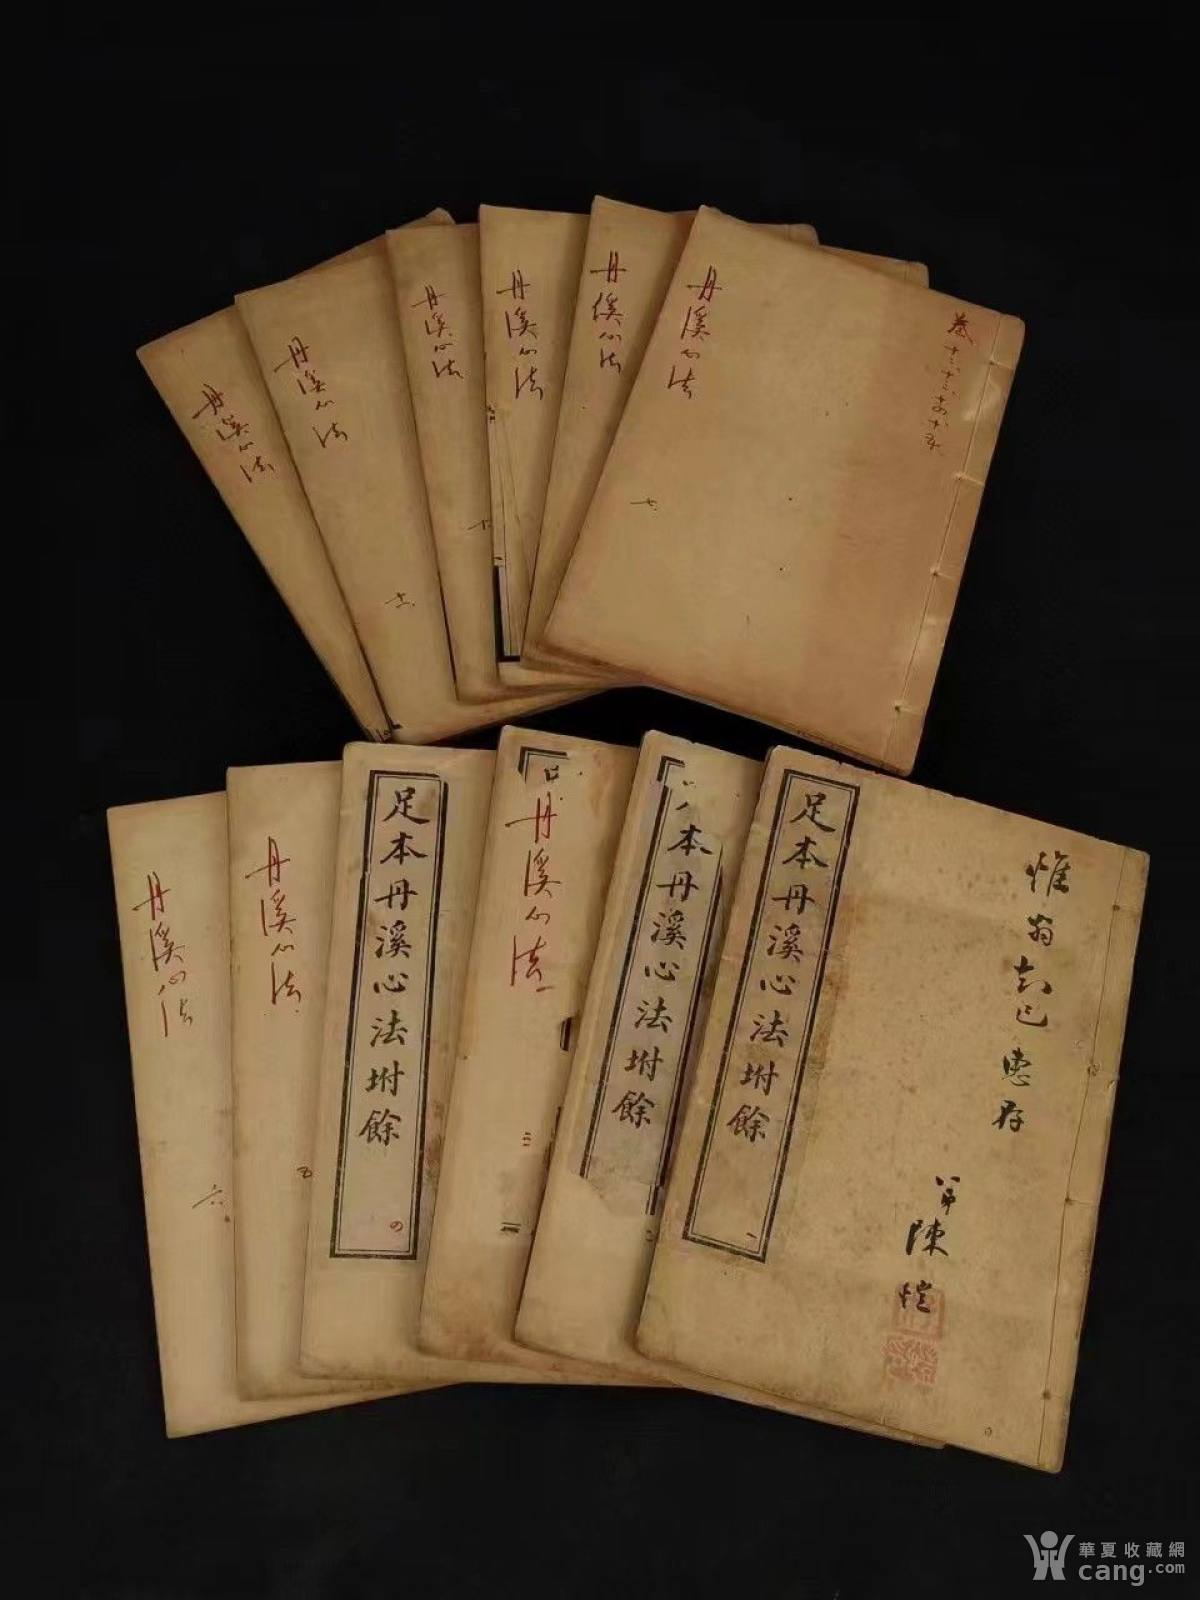 丹溪心法
丹溪心法
十一
丹溪心法
十
丹溪心法
丹溪心法
丹溪心法
七
卷十二十三十四十五
丹溪心法
六
丹溪心法
五
足本丹溪心法坿餘
四
丹溪心法
三
本丹溪心法坿餘
二
足本丹溪心法坿餘
一
惟翁知己惠存
弟陳愷
華夏收藏網
cang.com